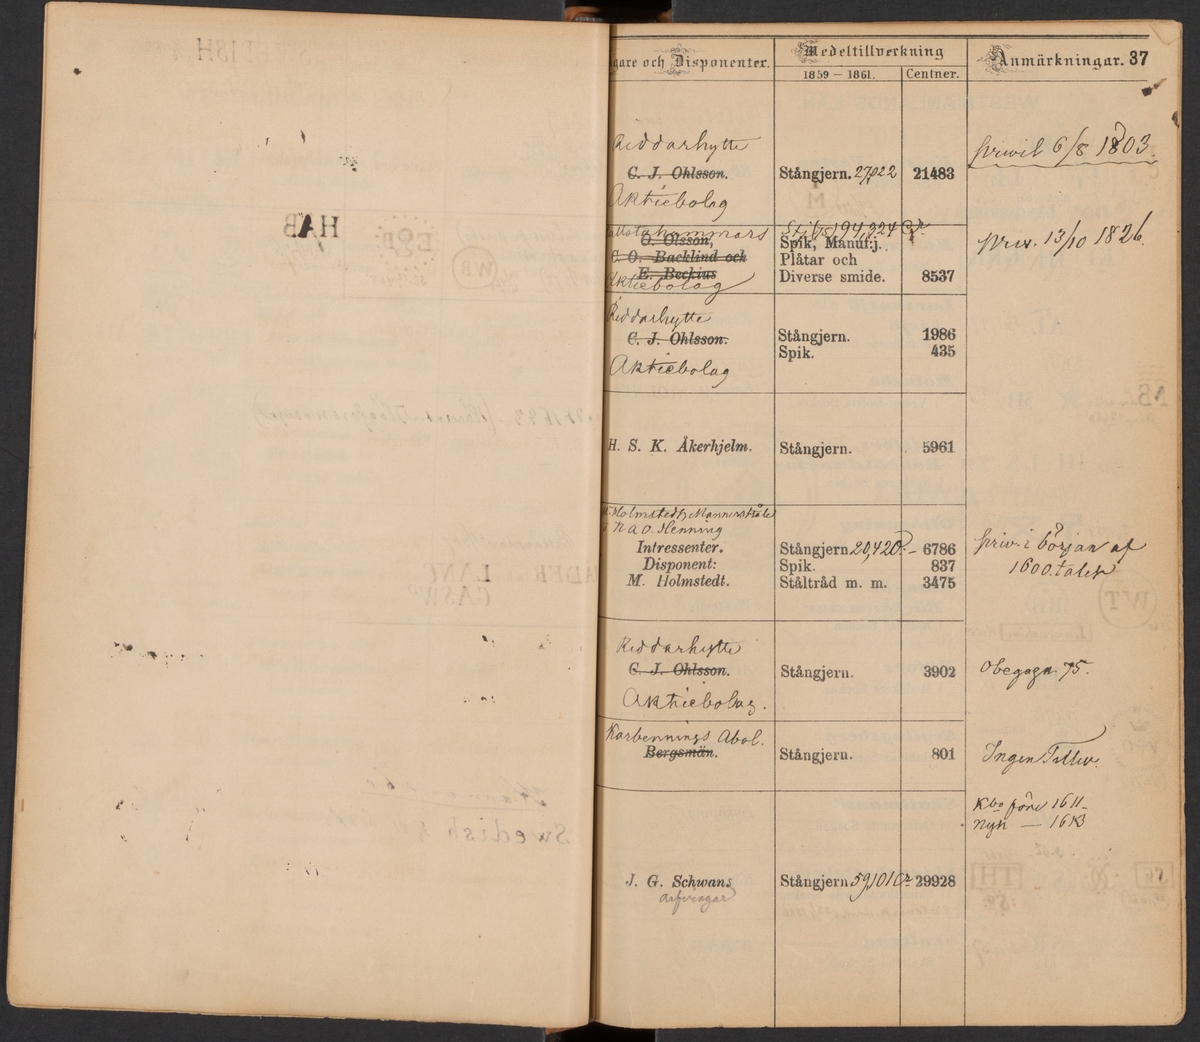 gare och Disponenter.
Medeltillverkning
1859 — 1861.
Centner.
Anmärkningar. 37
HAB
Riddarhytte
C. J. Ohlsson.
Aktiebolag
Stångjern. 27,022
21483
privil 6/8 1803
hammars
O. Olsson,
C. O. Backlind och
E. Beckius
Aktiebolag
194,224 Cr
Spik, Manuf:j.
Plåtar och
Diverse smide.
8537
priv. 13/10 1826
Riddarhytte
C. J. Ohlsson.
Aktiebolag
Stångjern.
1986
Spik.
435
H. S. K. Åkerhjelm.
Stångjern.
5961
Holmstedt, Mannerstråle
Henning
Intressenter.
Disponent:
M. Holmstedt.
Stångjern 20,420
6786
Spik.
837
Ståltråd m. m.
3475
priv. i början af
1600.talet
Riddarhytte
C. J. Ohlsson.
Aktiebolag.
Stångjern.
3902
Obegagn. 75.
Karbennings Abol.
Bergsmän.
Stångjern.
801
Ingen Tillv.
före 1611
— 1613
J. G. Schwans
arfvingar
Stångjern 59,101 Cr
29928